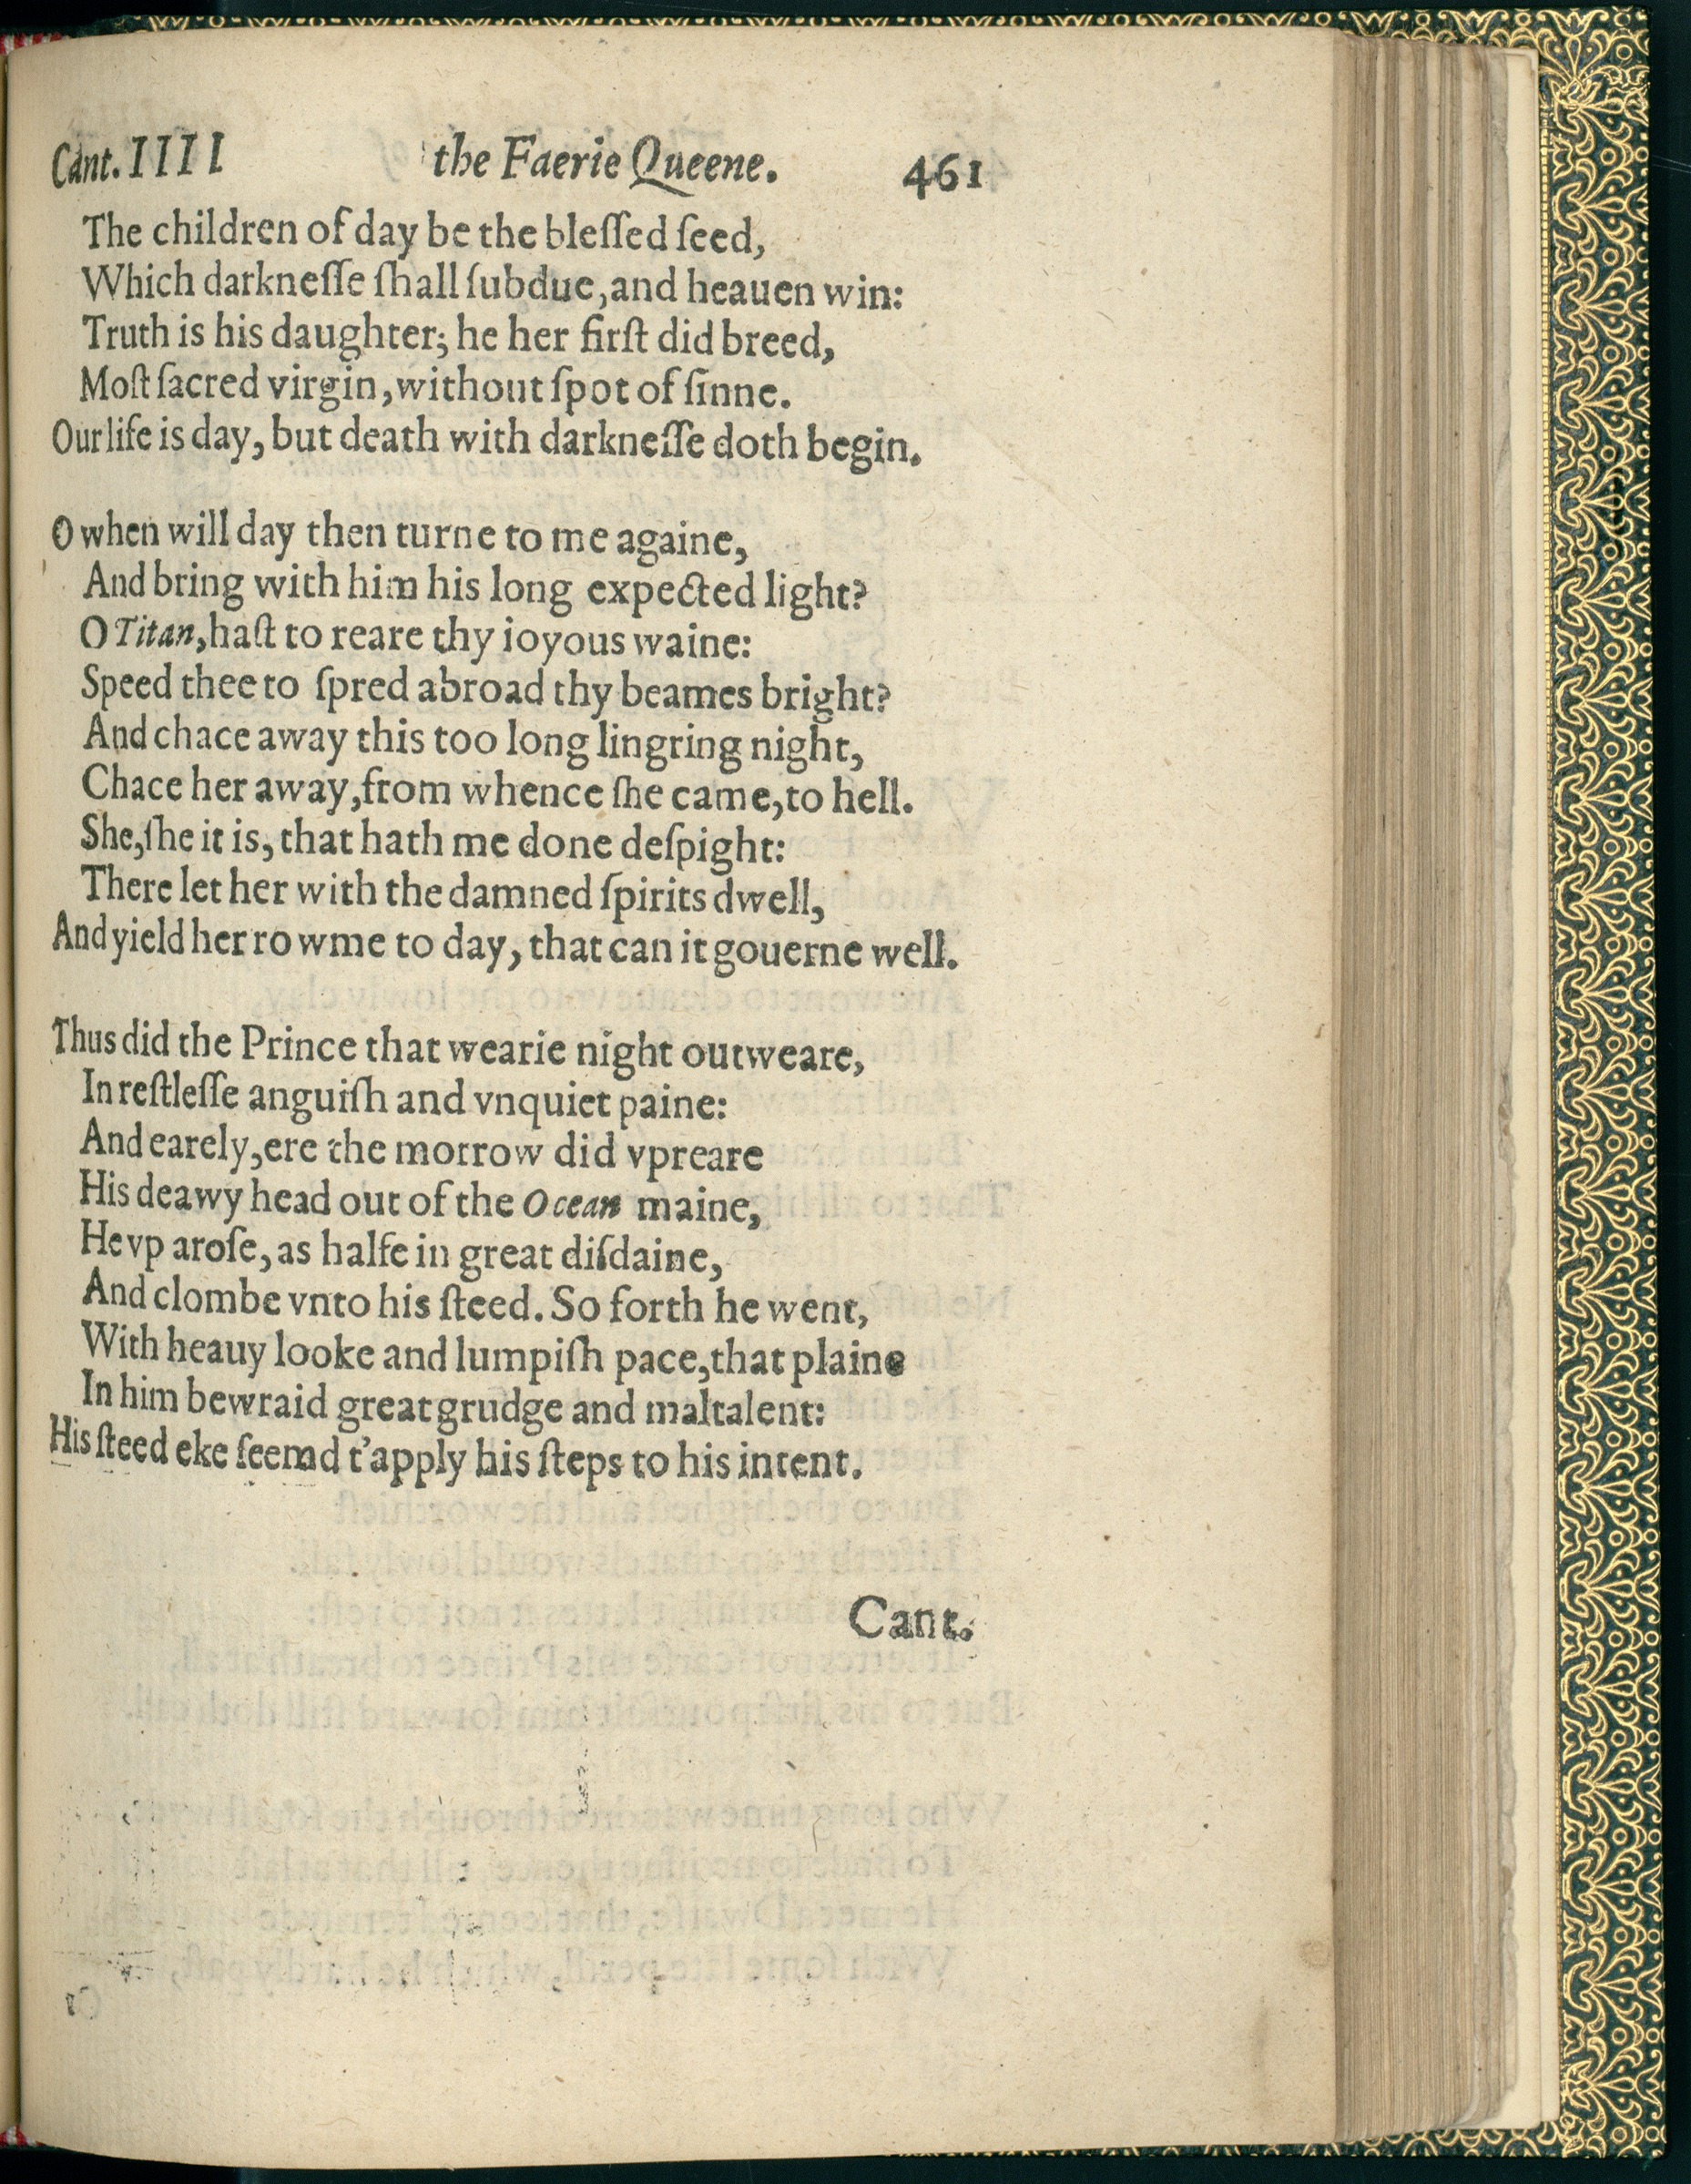 Cant. IIII the Faerie Queene. 461
The children of day be the bleſſed ſeed,
Which darkneſſe ſhall ſubdue, and heauen win:
Truth is his daughter; he her firſt did breed,
Moſt ſacred virgin, without ſpot of ſinne.
Our life is day, but death with darkneſſe doth begin.
O when will day then turne to me againe,
And bring with him his long expected light?
O Titan, haſt to reare thy ioyous waine:
Speed thee to ſpred abroad thy beames bright?
And chace away this too long lingring night,
Chace her away, from whence ſhe came, to hell.
She, ſhe it is, that hath me done deſpight:
There let her with the damned ſpirits dwell,
And yield her rowme to day, that can it gouerne well.
Thus did the Prince that wearie night outweare,
In reſtleſſe anguiſh and vnquiet paine:
And earely, ere the morrow did vpreare
His deawy head out of the Ocean maine,
He vp aroſe, as halfe in great diſdaine,
And clombe vnto his ſteed. So forth he went,
With heauy looke and lumpiſh pace, that plaine
In him bewraid great grudge and maltalent:
His ſteed eke ſeemd t'apply his ſteps to his intent.
Cant.